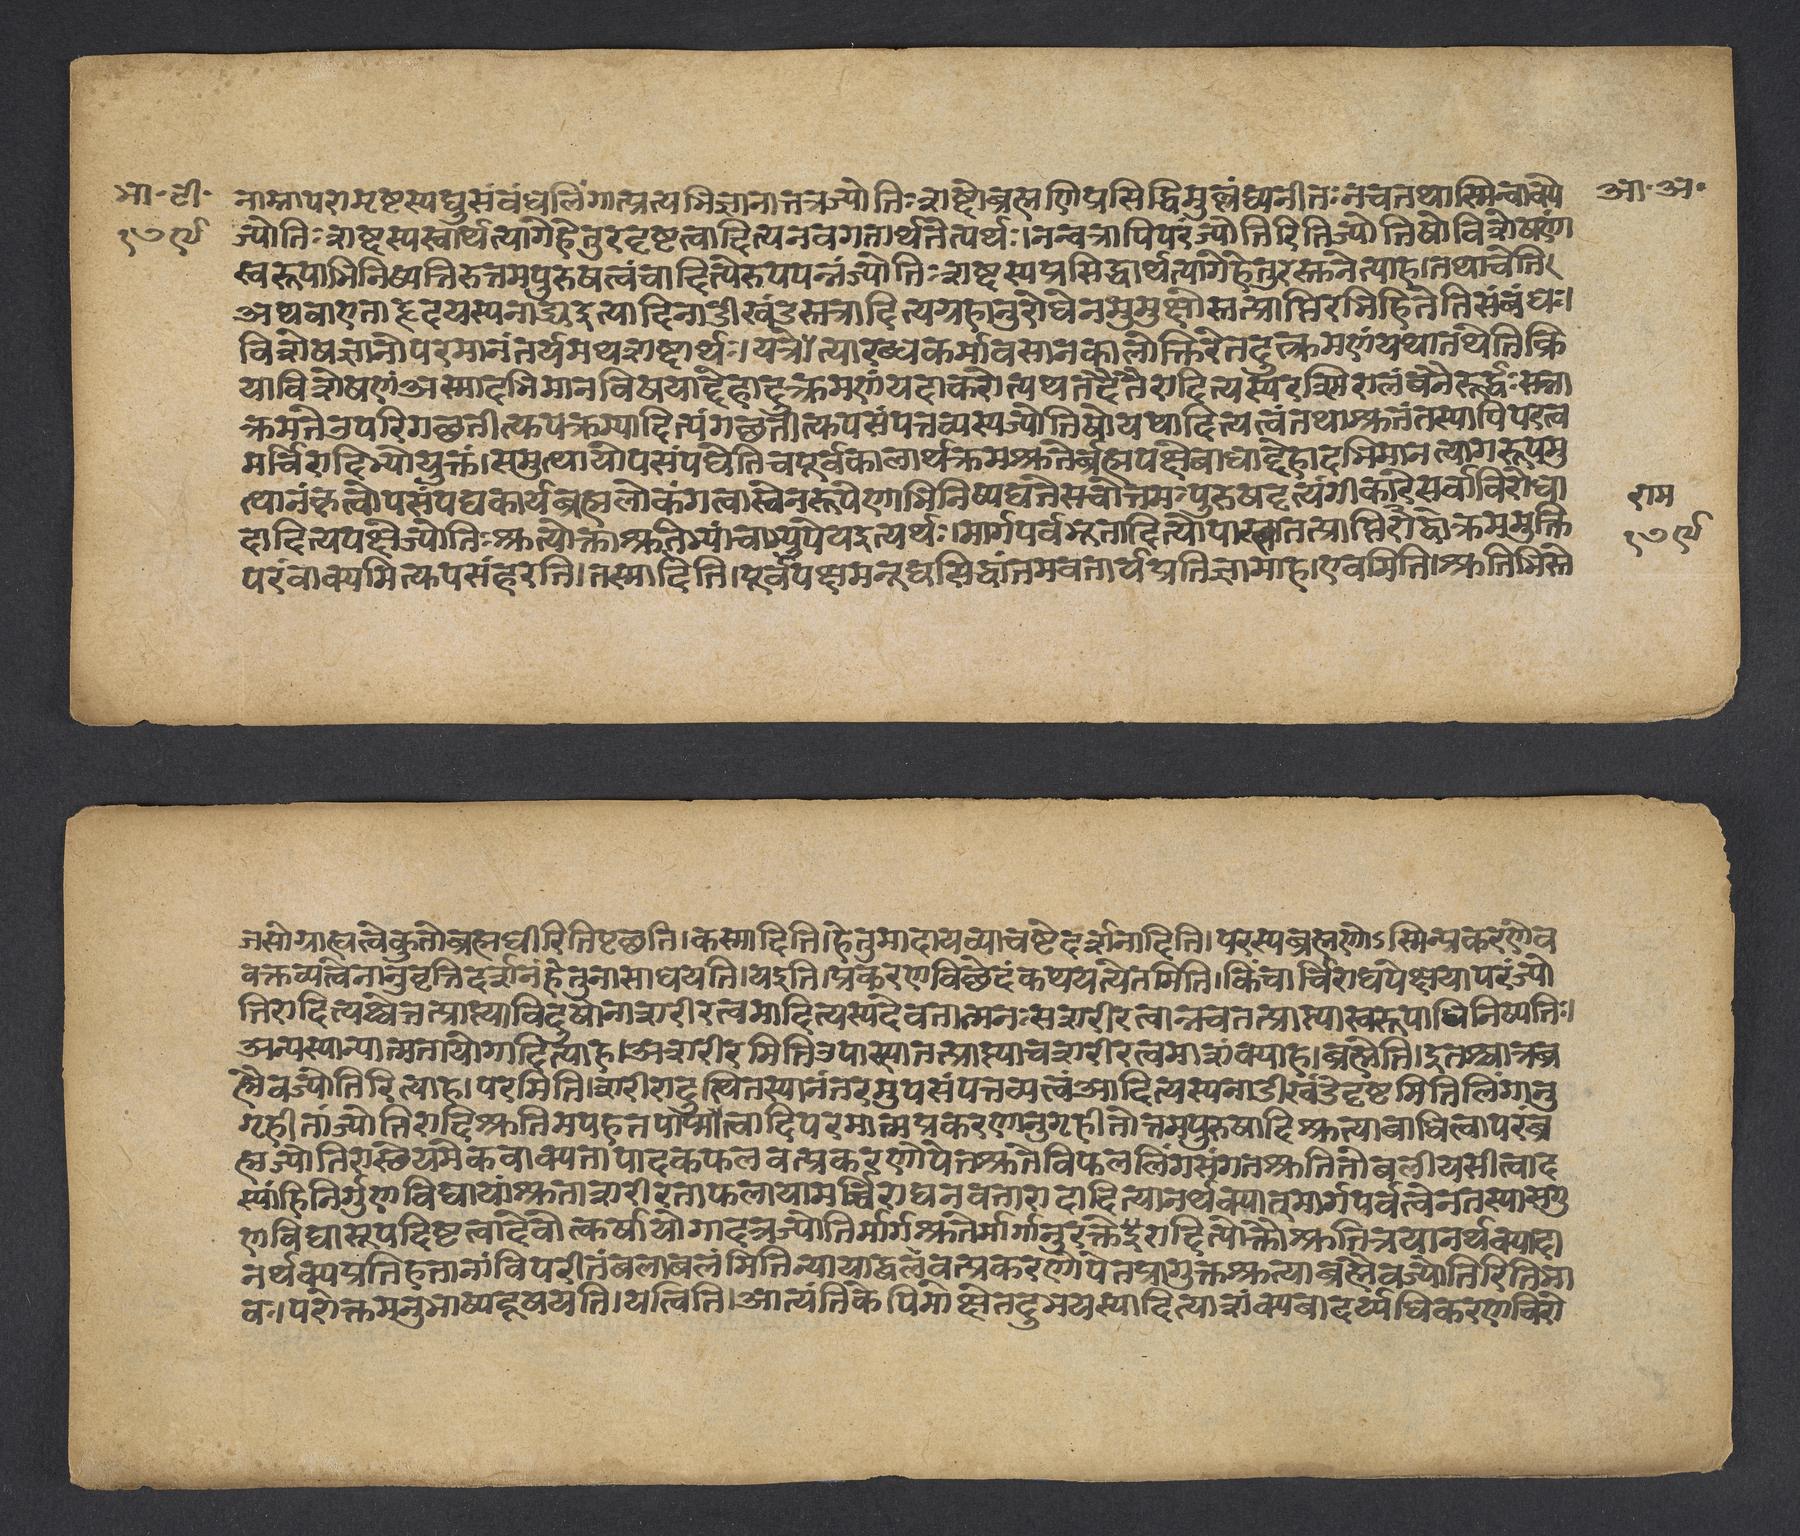 भा॰ टी॰
१७९
आ॰ अ॰
नाम्नापरामृष्टस्यद्युसंबंधलिंगात्प्रत्यभिज्ञानात्तत्रज्योतिःशब्दोब्रह्मणिप्रसिद्धिमुल्लंघ्यनीतःनचतथास्मिन्वाक्ये
ज्योतिःशब्दस्यस्वार्थत्यागेहेतुरदृष्टत्वादित्यनवगतार्थतेत्यर्थः।नन्वत्रापिपरंज्योतिरितिज्योतिषोविशेषणं
स्वरूपाभिनिष्पत्तिरुत्तमपुरुषत्वंवादित्येरुपपन्नंज्योतिःशब्दस्यप्रसिद्धार्थत्यागेहेतुरस्तनेत्याह।तथाचेति।
अथवाएताहृदयस्यनाड्यइत्यादिनाडीखंडस्तत्रादित्यग्रहानुरोधेनमुमुक्षोस्तत्प्राप्तिरभिहितेतिसंबंधः।
विशेषज्ञानोपरमानंतर्यमथशब्दार्थः।यत्रेत्यारब्धकर्मावसानकालोक्तिरेतदुत्क्रमणंयथातथेतिक्रि
याविशेषणंअस्मादभिमानविषयाद्देहादुत्क्रमणंयदाकरोत्यथतदैतैरादित्यस्यरश्मिरालंबनैरूर्द्ध्वःसन्ना
क्रमतेउपरिगछतीत्युपक्रम्यादित्यंगछतीत्युपसंपत्तव्यस्यज्योतिषोयथादित्यत्वंतथाश्रुतंतस्यापिपरत्व
मर्चिरादिभ्योयुक्तं।समुत्थायोपसंपद्येतिचपूर्वकालार्थक्रमश्रुतेर्ब्रह्मपक्षेबाधाद्देहादभिमानत्यागरूपमु
त्थानंकृत्वोपसंपद्यकार्यब्रह्मलोकंगत्वास्वेनरूपेणाभिनिष्पद्यतेसचोत्तमःपुरुषइत्यंगीकारेसर्वाविरोधा
दादित्यपक्षेज्योतिःश्रुत्योक्ताश्रुतिभ्यांचाभ्युपेयइत्यर्थः।मार्गपर्वभूतादित्योपास्त्यातत्प्राप्तिरोद्दोक्रममुक्ति
परंवाक्यमित्युपसंहरति।तस्मादिति।पूर्वपक्षमनूद्यसिद्धांतमवतार्यप्रतिज्ञामाह।एवमिति।श्रुतिभिस्ते
राम
१७९
जसोग्राह्यत्वेकुतोब्रह्मधीरितिपृछति।कस्मादिति।हेतुमादायव्याचष्टेदर्शनादिति।परस्यब्रह्मणोऽस्मिन्प्रकरणेव
क्तव्यत्वेनानुवृत्तिदर्शनंहेतुनासाधयति।यइति।प्रकरणविछेदंकथयत्येतमिति।किंचार्चिराद्यपेक्षयापरंज्यो
तिरादित्यश्चेत्तत्प्राप्त्याविदुषोनाशरीरत्वमादित्यस्यदेवतात्मनःसशरीरत्वान्नचतत्प्राप्त्यास्वरूपाभिनिष्पत्तिः।
अन्यस्यान्यात्मतायोगादित्याह।अशरीरमितिउपास्यातत्प्राप्त्याचशरीरत्वमाशंक्याह।ब्रह्मेति।इतश्चात्रब्र
ह्मैवज्योतिरित्याह।परमिति।शरीरादुत्थितस्यानंतरमुपसंपत्तव्यत्वंआदित्यस्यनाडीखंडेदृष्टमितिलिंगानु
गृहीतांज्योतिरादिश्रुतिमपहतपाप्मत्वादिपरमात्मप्रकरणानुगृहीतोत्तमपुरुषादिश्रुत्याबाधित्वापरंब्र
ह्मज्योतिरास्थेयमेकवाक्यतापादकफलवत्प्रकरणोपेतश्रुतेविफललिंगसंगतश्रुतितोबलीयसीत्वाद
स्यांहिनिर्गुणविद्यायांश्रुताशरीरताफलायामर्चिराद्यनवतारादादित्यानर्थक्यात्मार्गपर्वत्वेनतस्यासगु
णविद्यासूपदिष्टत्वादेवोत्कर्षायोगादत्रज्योतिर्मार्गश्रुतेर्मार्गानुरक्तेदुरादित्योक्तौश्रुतित्रयानर्थक्यादा
नर्थक्यप्रतिहतानांविपरीतंबलाबलंमितिन्यायाद्वलवत्प्रकरणोपेतप्रागुक्तश्रुत्याब्रह्मैवज्योतिरितिभा
वः।परोक्तमनुभाष्यदूषयति।यत्त्विति।आत्यंतिकेपिमोक्षेतदुभयस्यादित्याशंक्यबादर्य्यधिकरणविरो